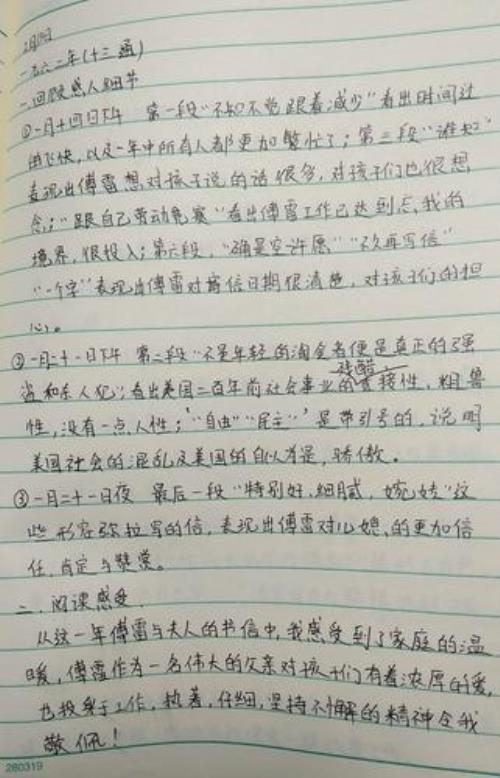 一九六二年(十三通)
一.回顾感人细节
①一月十四日下午 第一段“不知不觉跟着减少”看出时间过
的飞快,以及一年中所有人都更加繁忙了;第三段“谁知”
表现出傅雷想对孩子说的话很多,对孩子们也很想
念;“跟自己劳动竞赛”看出傅雷工作已达到忘我的
境界,很投入;第六段,“确是空许愿”“不久再写信”
“一个字”表现出傅雷对寄信日期很清楚,对孩子们的担
心。
②一月二十一日下午 第二段“不是年轻的淘金者便是真正的强
盗和杀人犯”看出美国二百年前社会事业的残酷性,粗鲁
性,没有一点人性;“‘自由’‘民主’”是带引号的,说明
美国社会的混乱及美国的自以为是,骄傲。
③一月二十一日夜 最后一段“特别好,细腻,婉转”这
些形容弥拉写的信,表现出傅雷对儿媳的更加信
任,肯定与赞赏。
二.阅读感受
从这一年傅雷与夫人的书信中,我感受到了家庭的温
暖,傅雷作为一名伟大的父亲对孩子们有着浓厚的爱,
也投身于工作,执着,仔细,坚持不懈的精神令我
敬佩!
280319